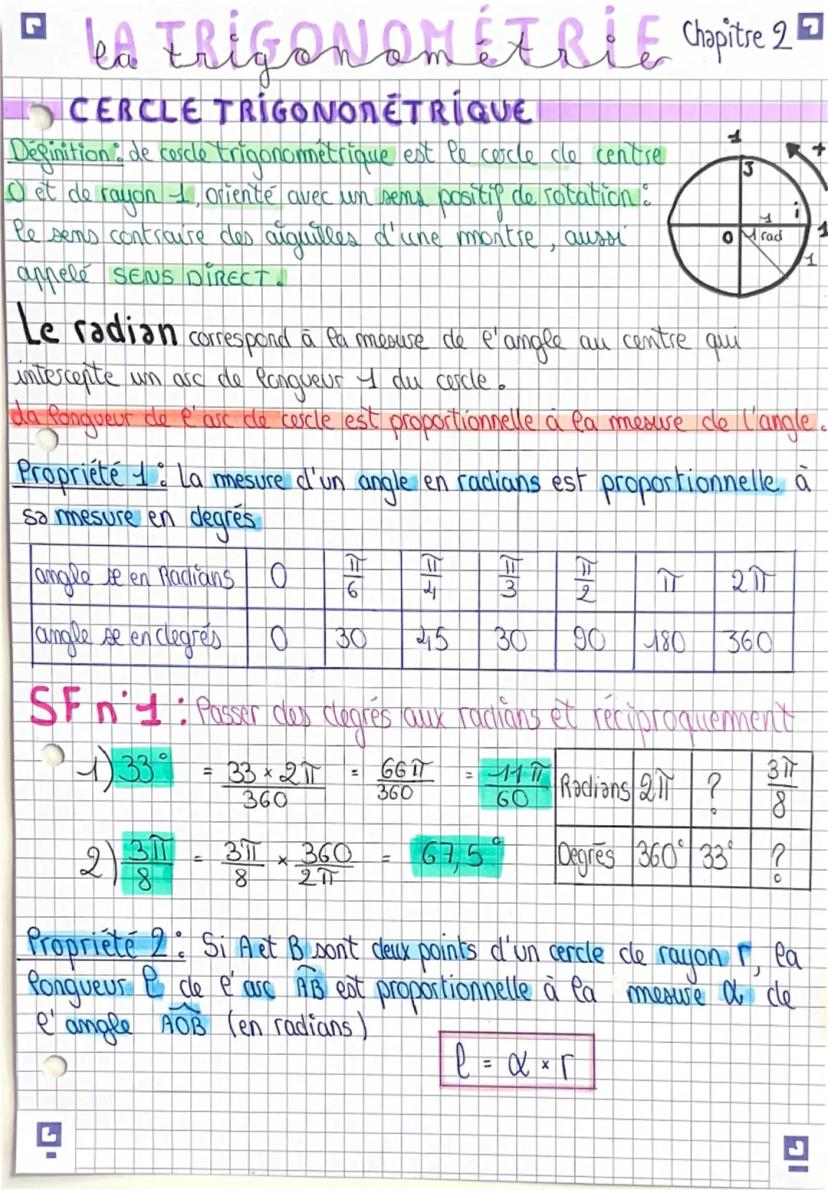 LA TRIGONOMÉTRIE
la trigonométrie
Chapitre 2
CERCLE TRIGONOMÉTRIQUE
Définition : le cercle trigonométrique est le cercle de centre
O et de rayon 1, orienté avec un sens positif de rotation :
le sens contraire des aiguilles d'une montre, aussi
appelé SENS DIRECT.
1
J
+
1
i
1
O
1 rad
1
Le radian correspond à la mesure de l'angle au centre qui
intercepte un arc de longueur 1 du cercle.
La longueur de l'arc de cercle est proportionnelle à la mesure de l'angle.
Propriété 1 : La mesure d'un angle en radians est proportionnelle à
sa mesure en degrés
angle x en Radians 0 π/6 π/4 π/3 π/2 π 2π
angle x en degrés 0 30 45 30 90 180 360
SF n°1 : Passer des degrés aux radians et réciproquement
1) 33° = 33 × 2π/360 = 66π/360 = 11π/60
Radians 2π ? 3π/8
2) 3π/8 = 3π/8 × 360/2π = 67,5°
Degrés 360° 33° ?
Propriété 2 : Si A et B sont deux points d'un cercle de rayon r, la
longueur l de l'arc AB est proportionnelle à la mesure α de
l'angle AOB (en radians)
l = α × r